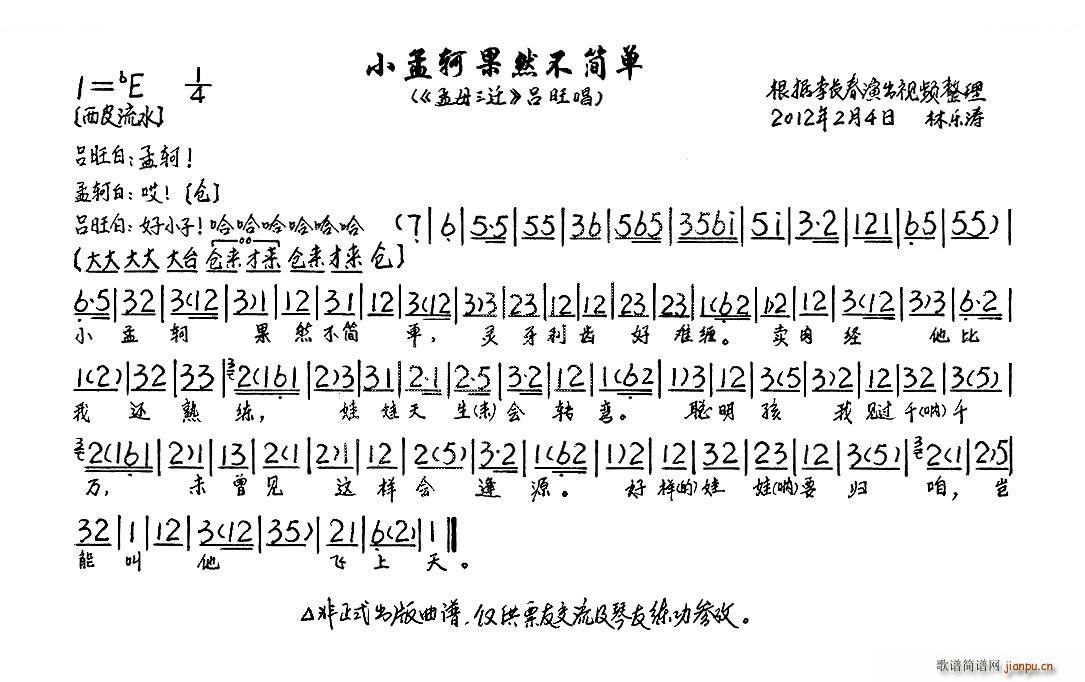 小孟轲果然不简单
(《孟母三迁》吕旺唱)
1=♭E 1/4
[西皮流水]
根据李长春演出视频整理
2012年2月4日 林乐涛
吕旺白:孟轲!
孟轲白:哎![仓]
吕旺白:好小子!哈哈哈哈哈哈 (7|6|5·5|55|36|565|356i|5i|3·2|121|65|55)|
[大大 大大 大台 仓来才来 仓来才来 仓]
6·5|32|3(12|3)1|12|31|12|3(12|3)3|23|12|12|23|23|1(62|1)2|12|3(12|3)3|6·2|
小孟轲果然不简单,灵牙利齿好难缠。卖肉经他比
1(2)|32|33|2(161|2)3|31|2·1|2·5|3·2|12|1(62|1)3|12|3(5|3)2|12|32|3(5)|
我还熟练,娃娃天生(未)会转弯。聪明孩我见过千(呐)千
2(161|2)1|13|2(1|2)1|12|2(5)|3·2|1(62|1)2|12|32|23|12|3(5)|2(1|2)5|
万,未曾见这样会逢源。好样(的)娃娃(呐)要归咱,岂
32|1|12|3(12|35)|21|6(2)|1‖
能叫他飞上天。
△非正式出版曲谱,仅供票友交流及琴友练功参改。
歌谱简谱网 jianpu.cn